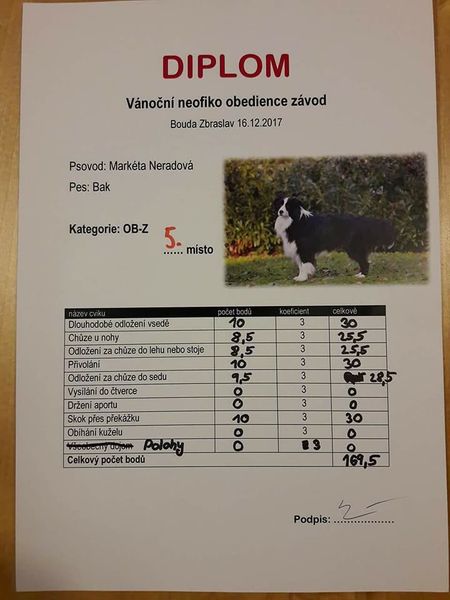 DIPLOM
Vánoční neofiko obedience závod
Bouda Zbraslav 16.12.2017
Psovod: Markéta Neradová
Pes: Bak
Kategorie: OB-Z 5. ...... místo
název cviku počet bodů koeficient celkově
Dlouhodobé odložení vsedě 10 3 30
Chůze u nohy 8,5 3 25,5
Odložení za chůze do lehu nebo stoje 8,5 3 25,5
Přivolání 10 3 30
Odložení za chůze do sedu 9,5 3 28,5
Vysílání do čtverce 0 3 0
Držení aportu 0 3 0
Skok přes překážku 10 3 30
Obíhání kuželu 0 3 0
Všeobecný dojem Polohy 0 3 0
Celkový počet bodů 169,5
Podpis: ..................